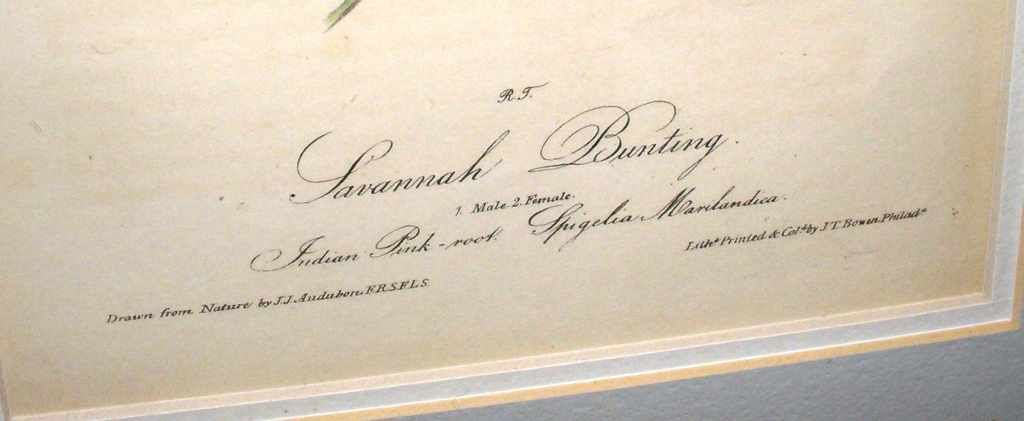 R.T.
Savannah Bunting.
1. Male 2. Female.
Indian Pink-root. Spigelia Marilandica.
Drawn from Nature by J.J. Audubon, F.R.S.F.L.S.
Lithd. Printed & Cold. by J.T. Bowen, Philada.